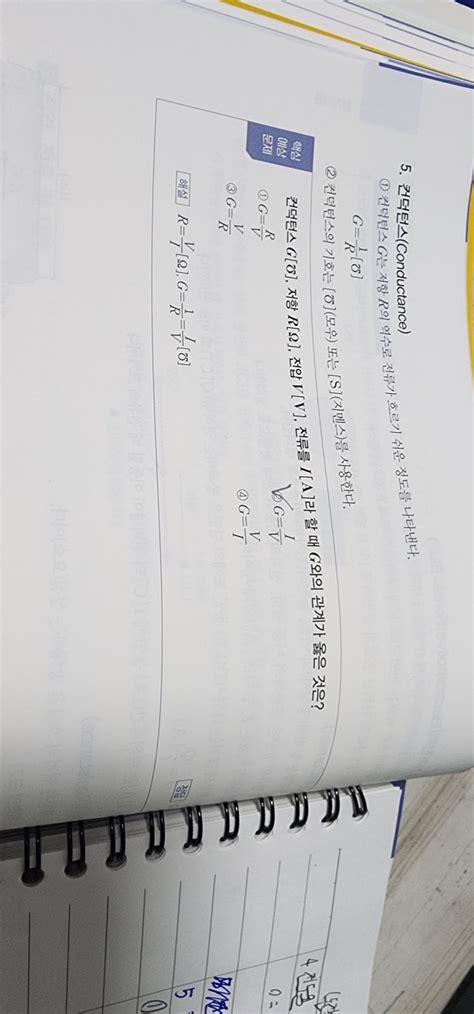 5. 컨덕턴스(Conductance)
① 컨덕턴스 G는 저항 R의 역수로 전류가 흐르기 쉬운 정도를 나타낸다.
G=1/R[℧]
② 컨덕턴스의 기호는 [℧](모우) 또는 [S](지멘스)를 사용한다.
핵심 예상 문제
컨덕턴스 G[℧], 저항 R[Ω], 전압 V[V], 전류를 I[A]라 할 때 G와의 관계가 옳은 것은?
① G=R/V ② G=I/V
③ G=V/R ④ G=V/I
해설 R=V/I[Ω], G=1/R=I/V[℧]
4
0=
5
①